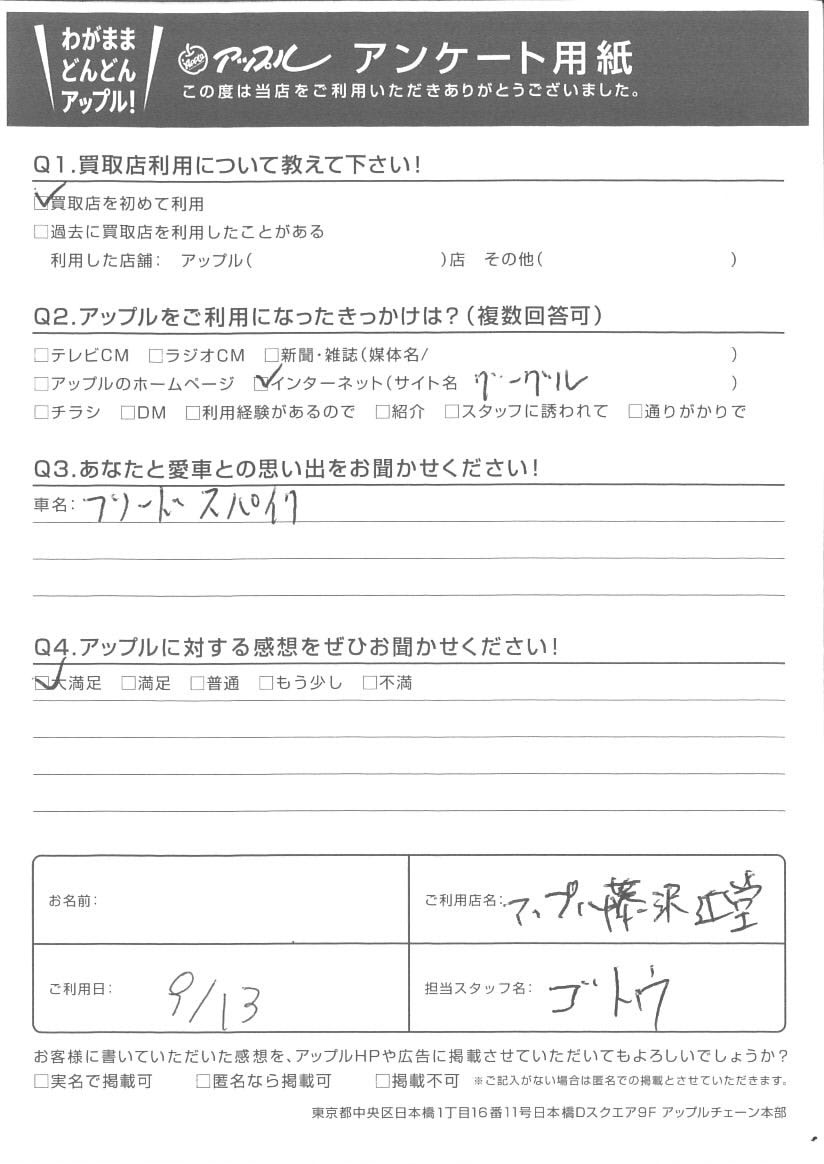 わがまま
どんどん
アップル!
Apple アップル アンケート用紙
この度は当店をご利用いただきありがとうございました。
Q1.買取店利用について教えて下さい!
☑買取店を初めて利用
□過去に買取店を利用したことがある
利用した店舗: アップル( )店 その他( )
Q2.アップルをご利用になったきっかけは?(複数回答可)
□テレビCM □ラジオCM □新聞・雑誌(媒体名/ )
□アップルのホームページ ☑インターネット(サイト名 グーグル )
□チラシ □DM □利用経験があるので □紹介 □スタッフに誘われて □通りがかりで
Q3.あなたと愛車との思い出をお聞かせください!
車名: フリード スパイク
Q4.アップルに対する感想をぜひお聞かせください!
☑大満足 □満足 □普通 □もう少し □不満
お名前:
ご利用店名: アップル藤沢辻堂
ご利用日: 9/13
担当スタッフ名: ゴトウ
お客様に書いていただいた感想を、アップルHPや広告に掲載させていただいてもよろしいでしょうか?
□実名で掲載可 □匿名なら掲載可 □掲載不可 ※ご記入がない場合は匿名での掲載とさせていただきます。
東京都中央区日本橋1丁目16番11号日本橋Dスクエア9F アップルチェーン本部